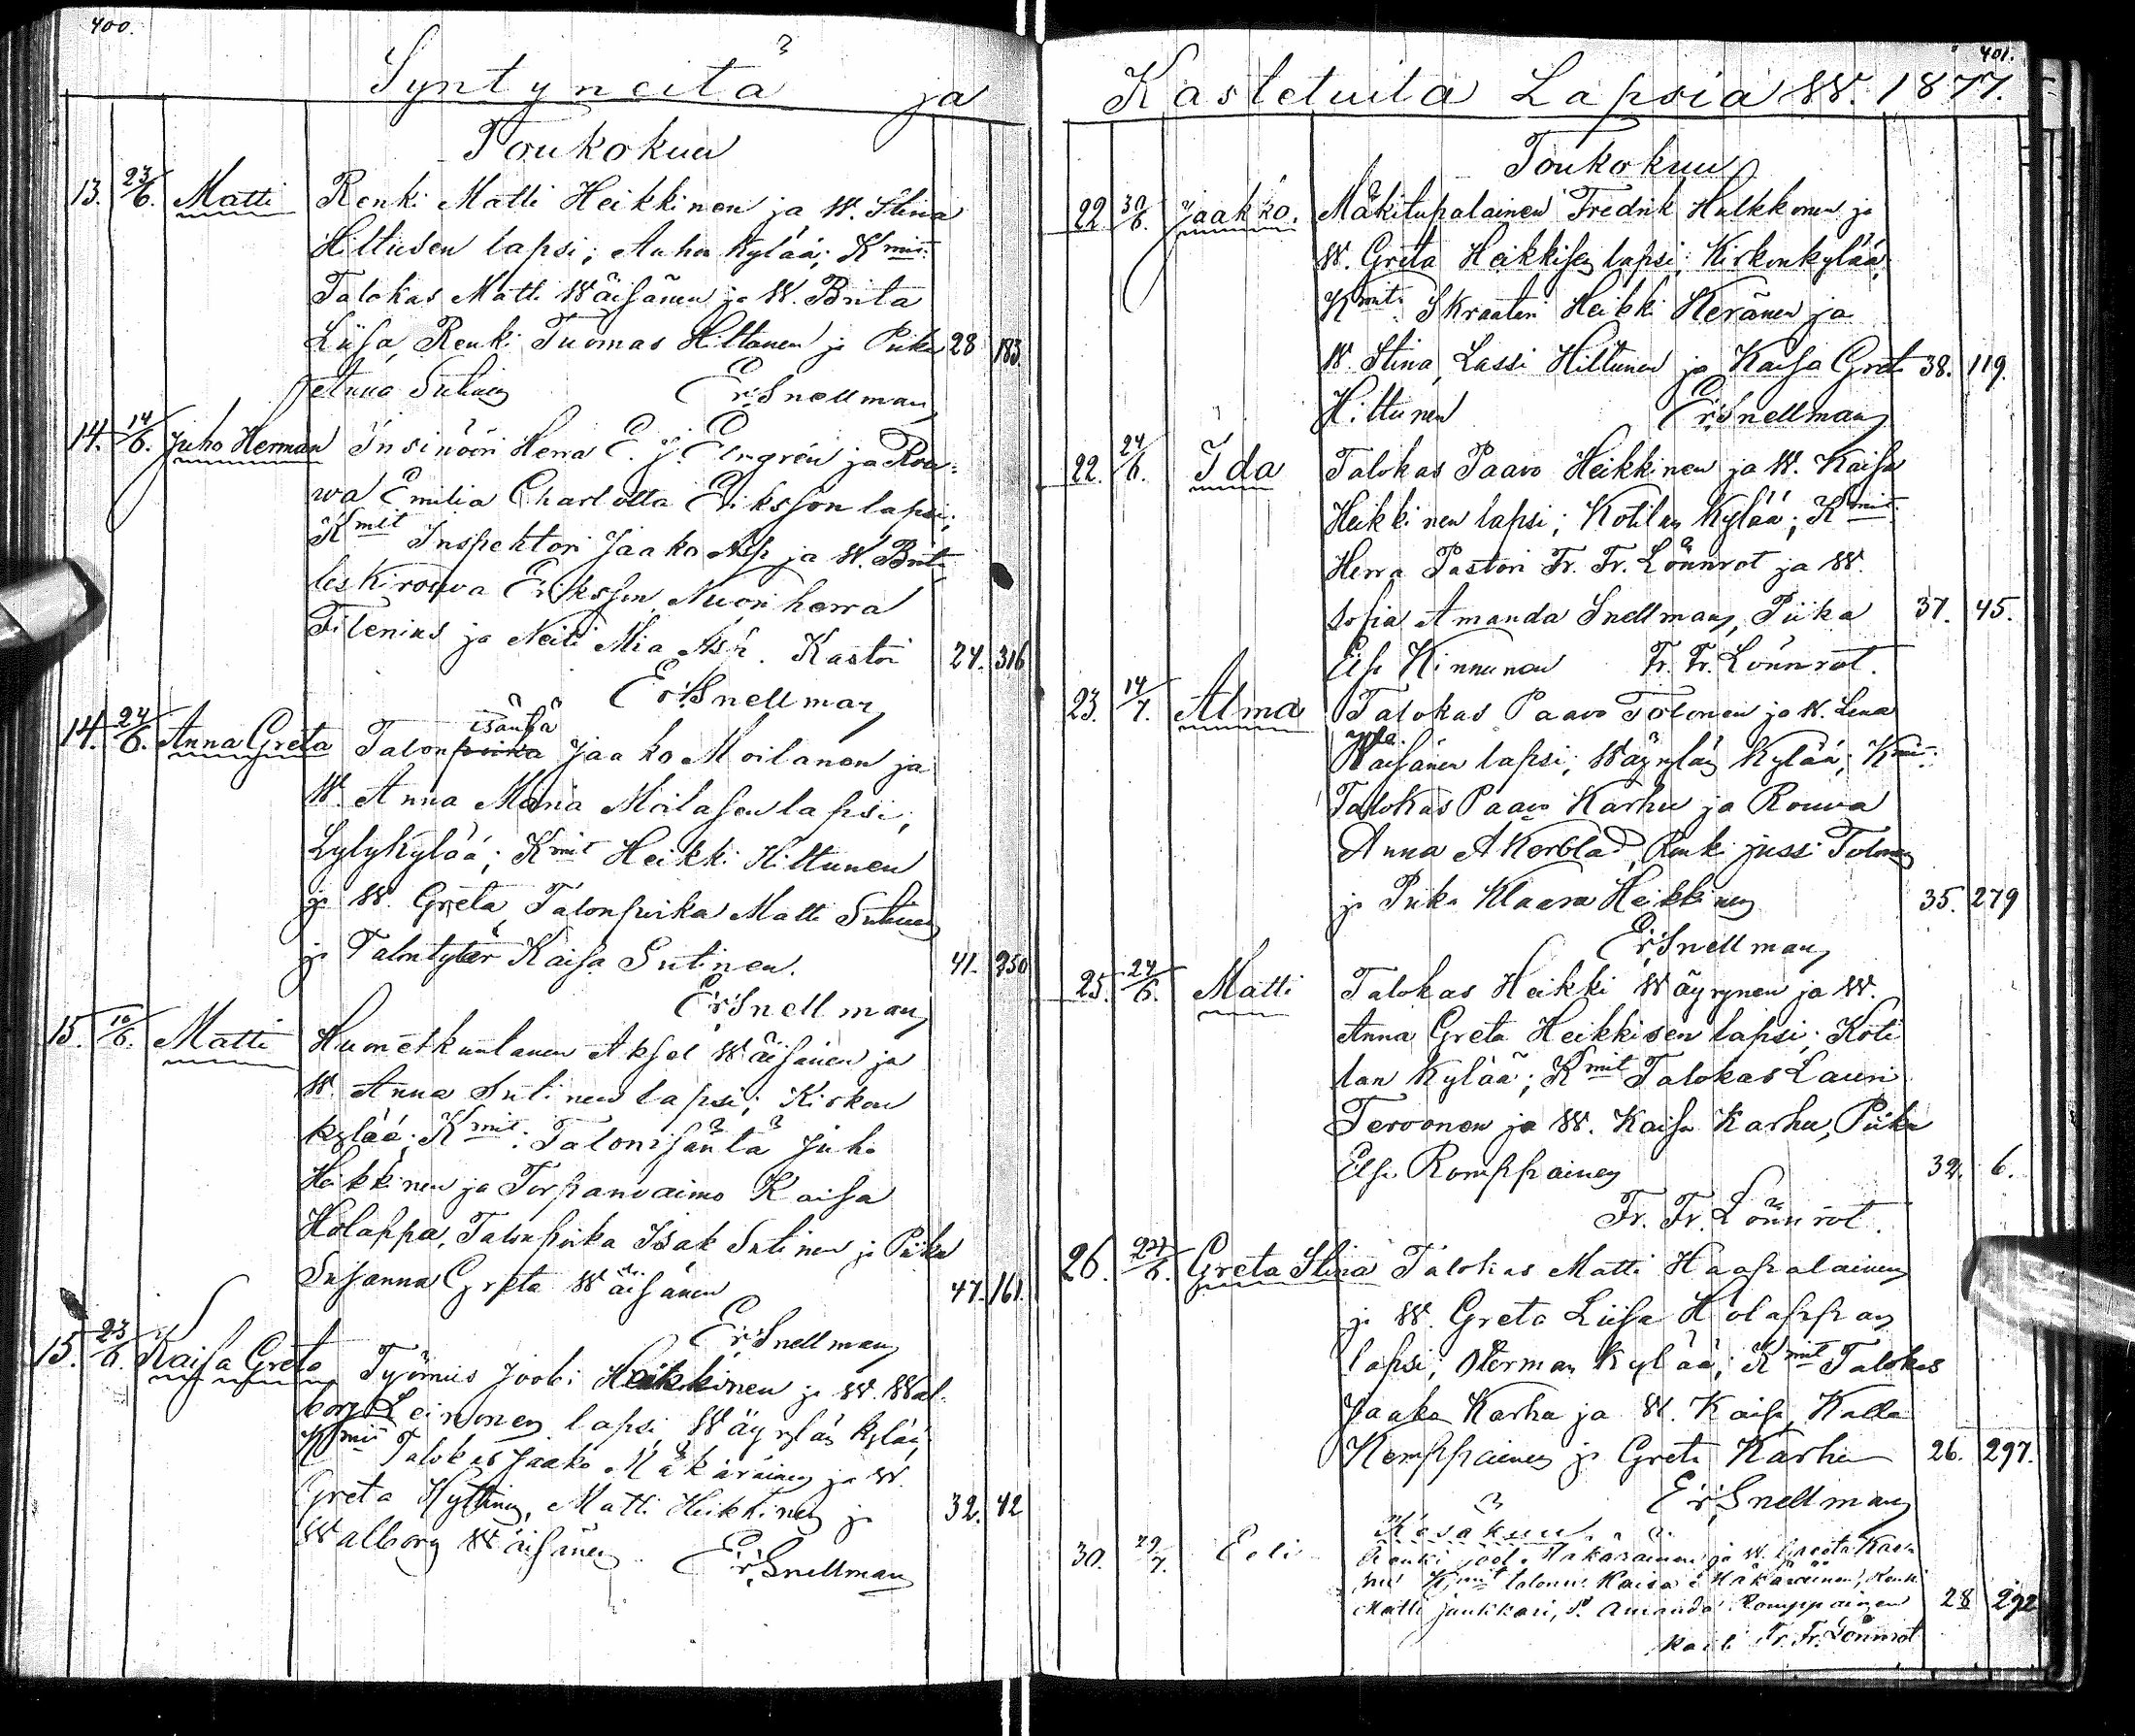 400.
Syntyneitä ja
Toukokuu
13. 23/6. Matti Renki Matti Heikkinen ja W. Stina
Hiltusen lapsi; Auhon kylää; Kmit.
Talokas Matti Wäisänen ja W. Brita
Liisa, Renki Tuomas Hiltunen ja Piika 28 183
Anna
Er. Snellman
14. 14/6. Juho Herman Insinööri Herra E. J. ja Rou-
wa Emilia Charlotta Eriksson lapsi;
Kmit Inspehtori Jaako ja W. Brita,
leskirouva Eriksson, Nuori herra
Filenius ja Neiti Mia Kastoi 24. 316
Er. Snellman
14. 24/6. Anna Greta Talonpoika isäntä Jaako Moilanen ja
W. Anna Maria Moilasen lapsi;
Lylykylää; Kmit Heikki Hiltunen
ja W. Greta, Talonpoika Matti Sutinen
ja Talontytär Kaisa Sutinen. 41. 350
Er. Snellman
15. 10/6. Matti Huonetkuntanen Aksel Wäisänen ja
W. Anna Sutinen lapsi; Kirkon
kylää; Kmit: Talonisäntä Juho
Heikkinen ja Torpanvaimo Kaisa
Holappa, Talonpoika Isak Sutinen ja Piika
Susanna Greta Wäisänen 47. 161.
Er. Snellman
15. 23/6. Kaisa Greta Työmies Joobi Heikkinen ja W. Wal-
borg Leinonen lapsi, Wäyrylän kylää;
Kmit Talokas Jaako Mäkäräinen ja W.
Greta Kyllönen, Matti Heikkinen ja 32. 42
Walborg Wäisänen
Er. Snellman
401.
Kastetuita Lapsia W. 1877.
Toukokuu
22. 30/6. Jaakko. Mäkitupalainen Fredrik Hulkkonen ja
W. Greta Heikkisen lapsi; Kirkonkylää;
Kmit. Skraatari Heikki Keränen ja
W. Stina, Lassi Hiltunen ja Kaisa Greta 38. 119.
Hiltunen Er. Snellman
22. 24/6. Ida Talokas Paavo Heikkinen ja W. Kaisa
Heikkinen lapsi; Kotilan Kylää; Kmit.
Herra Pastori Fr. Fr. Lönnrot ja W.
Sofia Amanda Snellman, Piika 37. 45.
Elsa Kinnunen Fr. Fr. Lönnrot.
23. 14/7. Alma Talokas Paavo Tolonen ja W. Lena
Wäisänen lapsi; Wäyrylän Kylää; Kmit.
Talokas Paavo Karhu ja Rouva
Anna Akerblad, Renki Jussi Tolonen
ja Piika Klaara Heikkinen 35. 279
Er. Snellman
25. 24/6. Matti Talokas Heikki Wäyrynen ja W.
Anna Greta Heikkisen lapsi; Koti
lan Kylää; Kmit Talokas Lauri
Tervonen ja W. Kaisa Karhu, Piika
Elsa Romppainen 32. 6.
Fr. Fr. Lönnrot.
26. 27/6. Greta Stina Talokas Matti Haapalainen
ja W. Greta Liisa Holappan
lapsi; Oterman Kylää; Kmit Talokas
Jaako Karhu ja W. Kaisa, Kalle
Kemppainen ja Greta Karhu 26. 297.
Er. Snellman
Kesäkuu
30. 29/7. Eeli Renki Joel Mäkäräinen ja W. Greeta Kar-
hu Kmit Kaisa Mäkäräinen, Renki
Matti Juntkari, P. Amanda Romppainen 28 292
Kast. Fr. Fr. Lönnrot